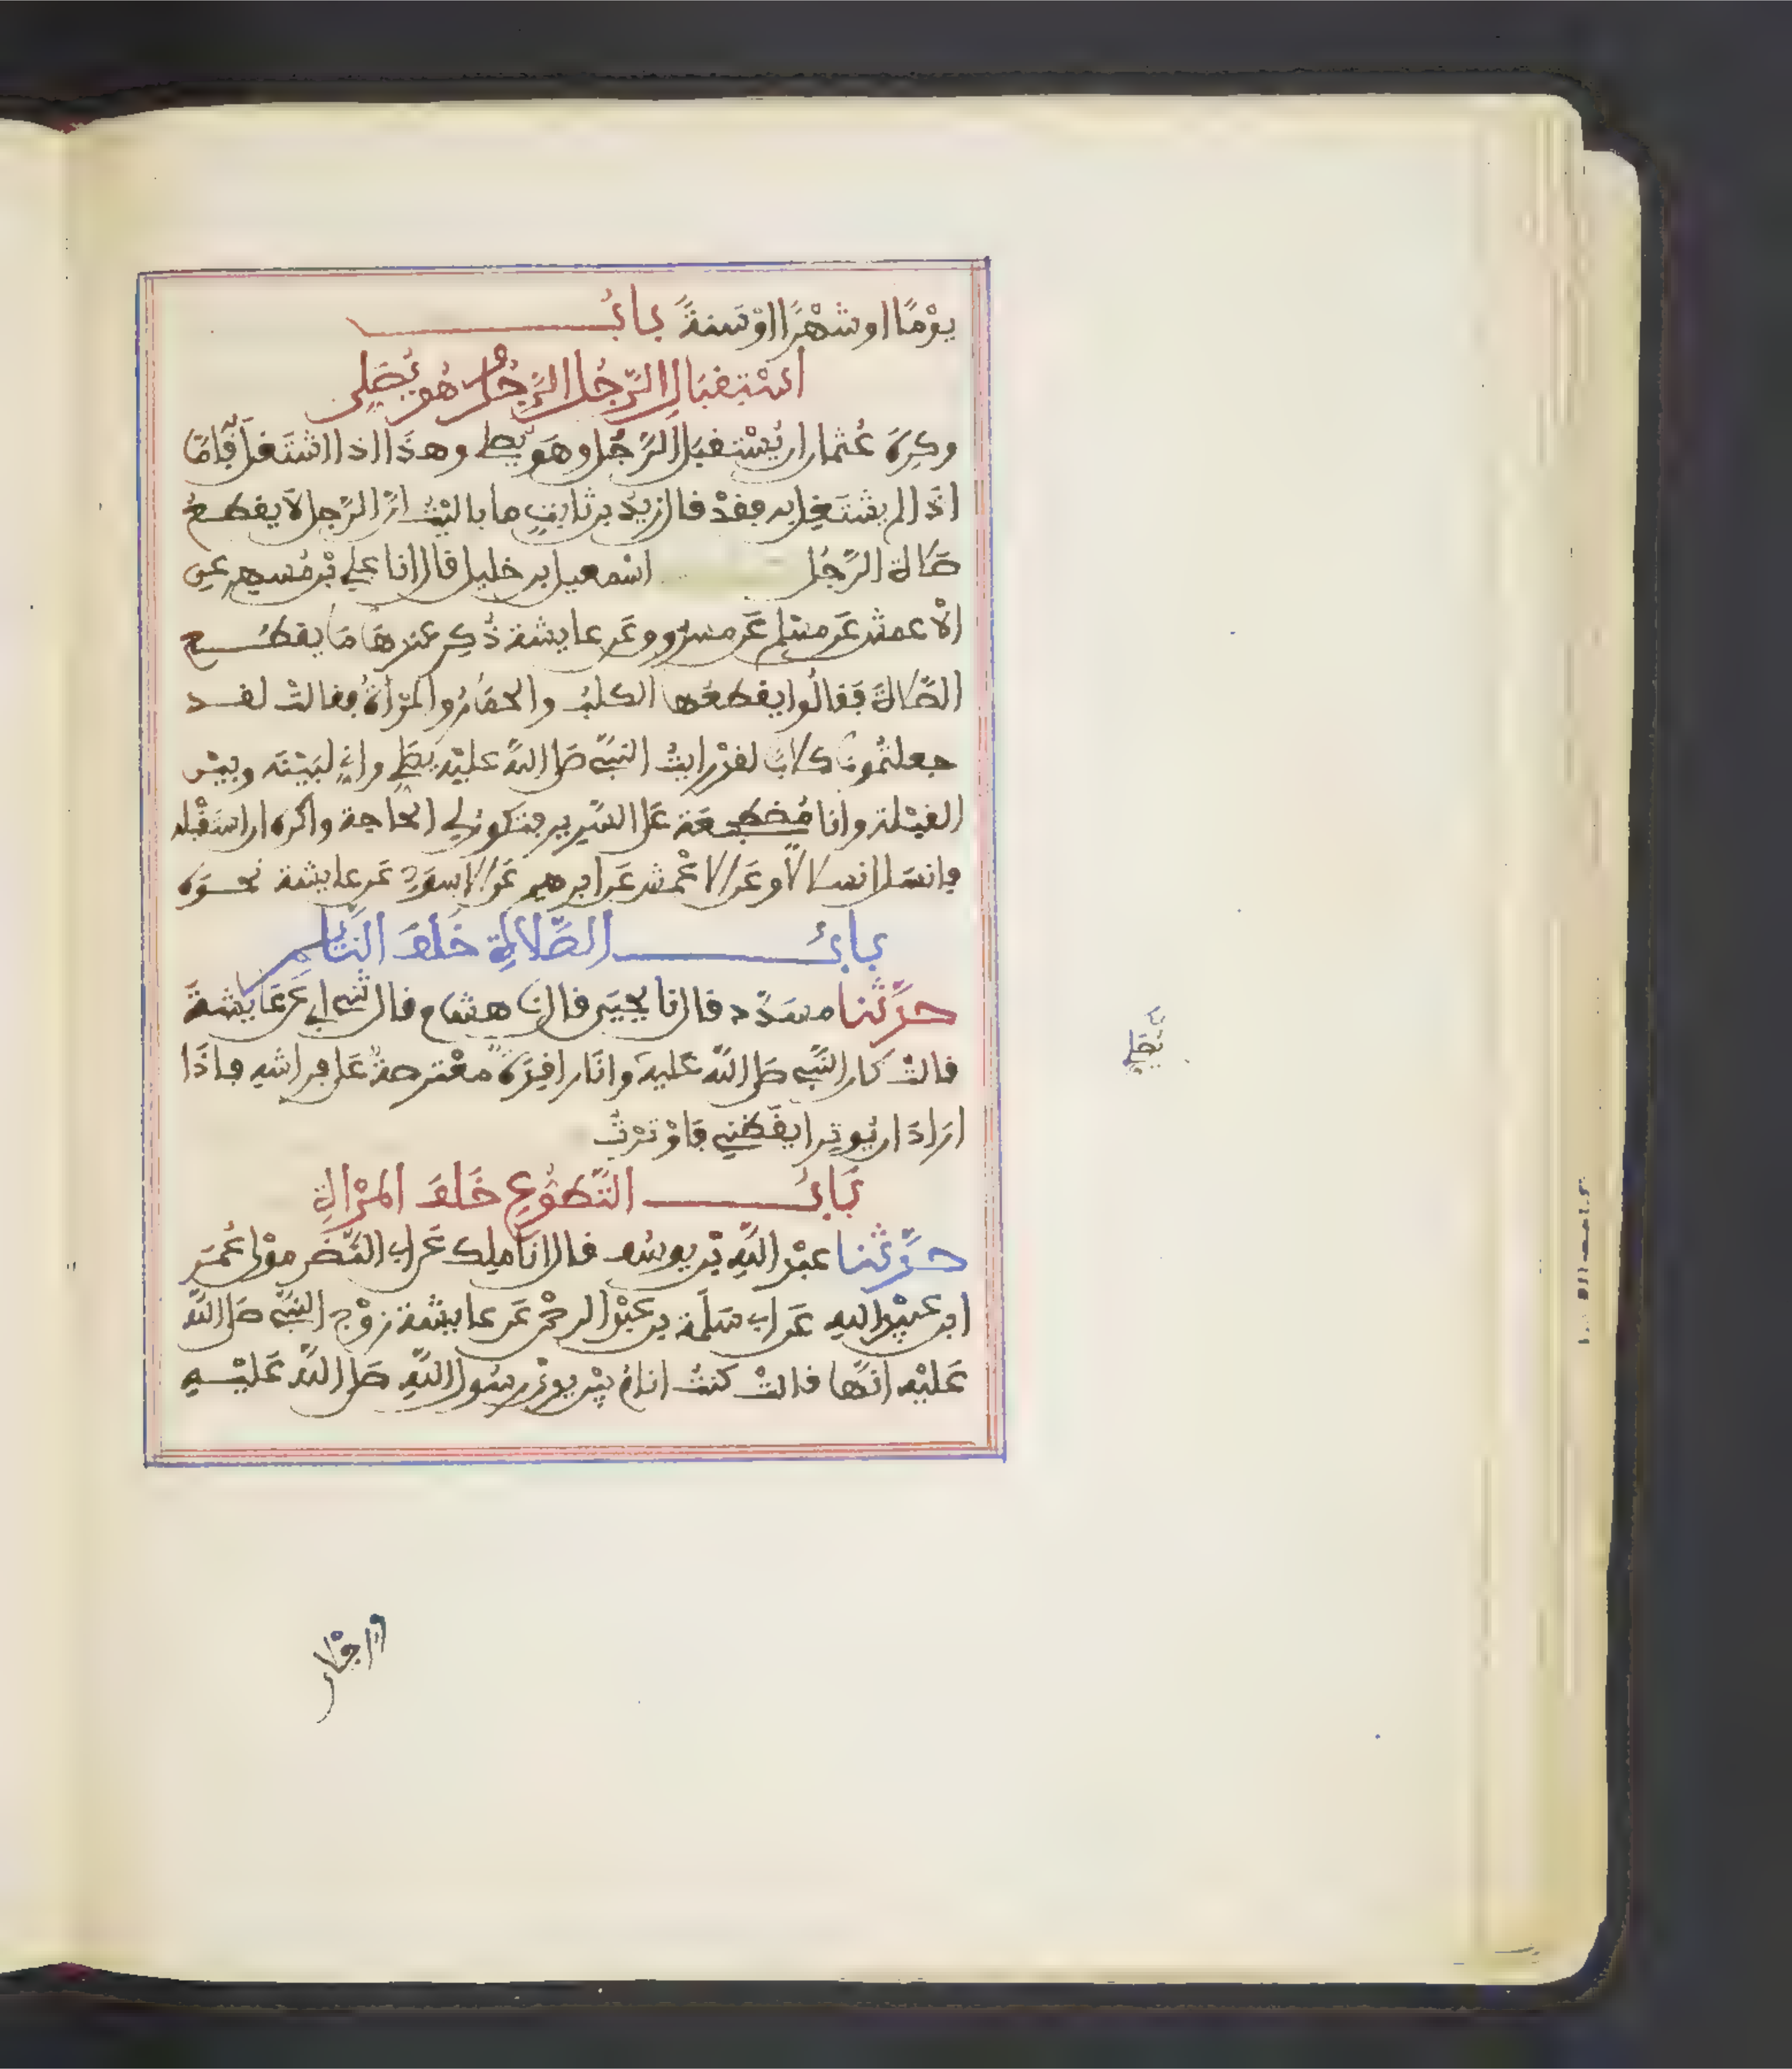 يوْمًا او شهْرًا اوْ سَنةً بابُ
اسْتِقبَالِ الرّجُلِ الرَّجُلَ وهُو يُصَلِى
وكرِهَ عُثمان ان يُسْتقبَل الرَّجُل وهوَ يصلي وهذَا اذا اشتَغل فَامّا
اذَا لم يشتَغِل به فقدْ قال زيدُ بن ثابتٍ ما باليْتُ انَّ الرّجل لَا يقطعُ
صَلاة الرَّجُل اسْمعيل بن خليل قال انا علي بْن مُسهِرٍ عن
الاْعمش عَن مسْلم عَن مسرُوق عَن عايشة ذُكِر عندهَا مَا يقطَعُ
الصَّلاةَ فَقالُوا يقطعُها الكلبُ والحمَارُ والمرْأةُ فقالتْ لقد
جعلتُمونا كلابًا لقدْ رايتُ النبيَّ صلى اللهُ عليْه يصَلي وانِي لبَيْنَه وبيْن
القبْلة وانا مُضطجعَة عَلى السَّرير فتكون لي الحَاجة واكره ان استَقْبله
فانسَل انسلالًا وعَن الاعْمش عَن ابرهيم عَن الاسوَدِ عَن عايشة نحوَه
بابُ الصَّلاةِ خَلفَ النَّائِمِ
حدَّثنا مسَدَّد قال نا يحيَى قال نا هشام قال ثني ابي عَن عَايشةَ
قالتْ كان النَّبي صلى اللهُ عَليه وانَا راقِدَةٌ معْترِضةٌ عَلى فراشه فاذَا
ارَادَ ان يُوتِر ايقَظني فَاوْترْتُ
بَابُ التَّطوُّعِ خَلفَ المرْأةِ
حدَّثنا عبْد اللهِ بْن يوسُف قال انَا ملِك عَن ابي النَّضر موْلى عُمَر
ابن عبيْد اللهِ عَن ابي سَلَمة بن عبْد الرحْمن عَن عايشة زوْجِ النبيِّ صلى اللهُ
عَليْه انَّها قالتْ كنتُ انامُ بيْن يديْ رسُول اللهِ صَلى اللهُ عَليْهِ